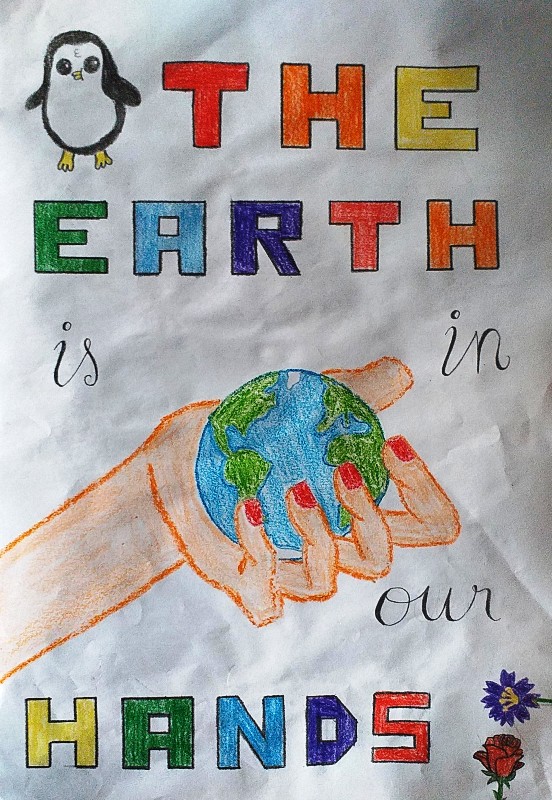 THE
EARTH
is in
our
HANDS